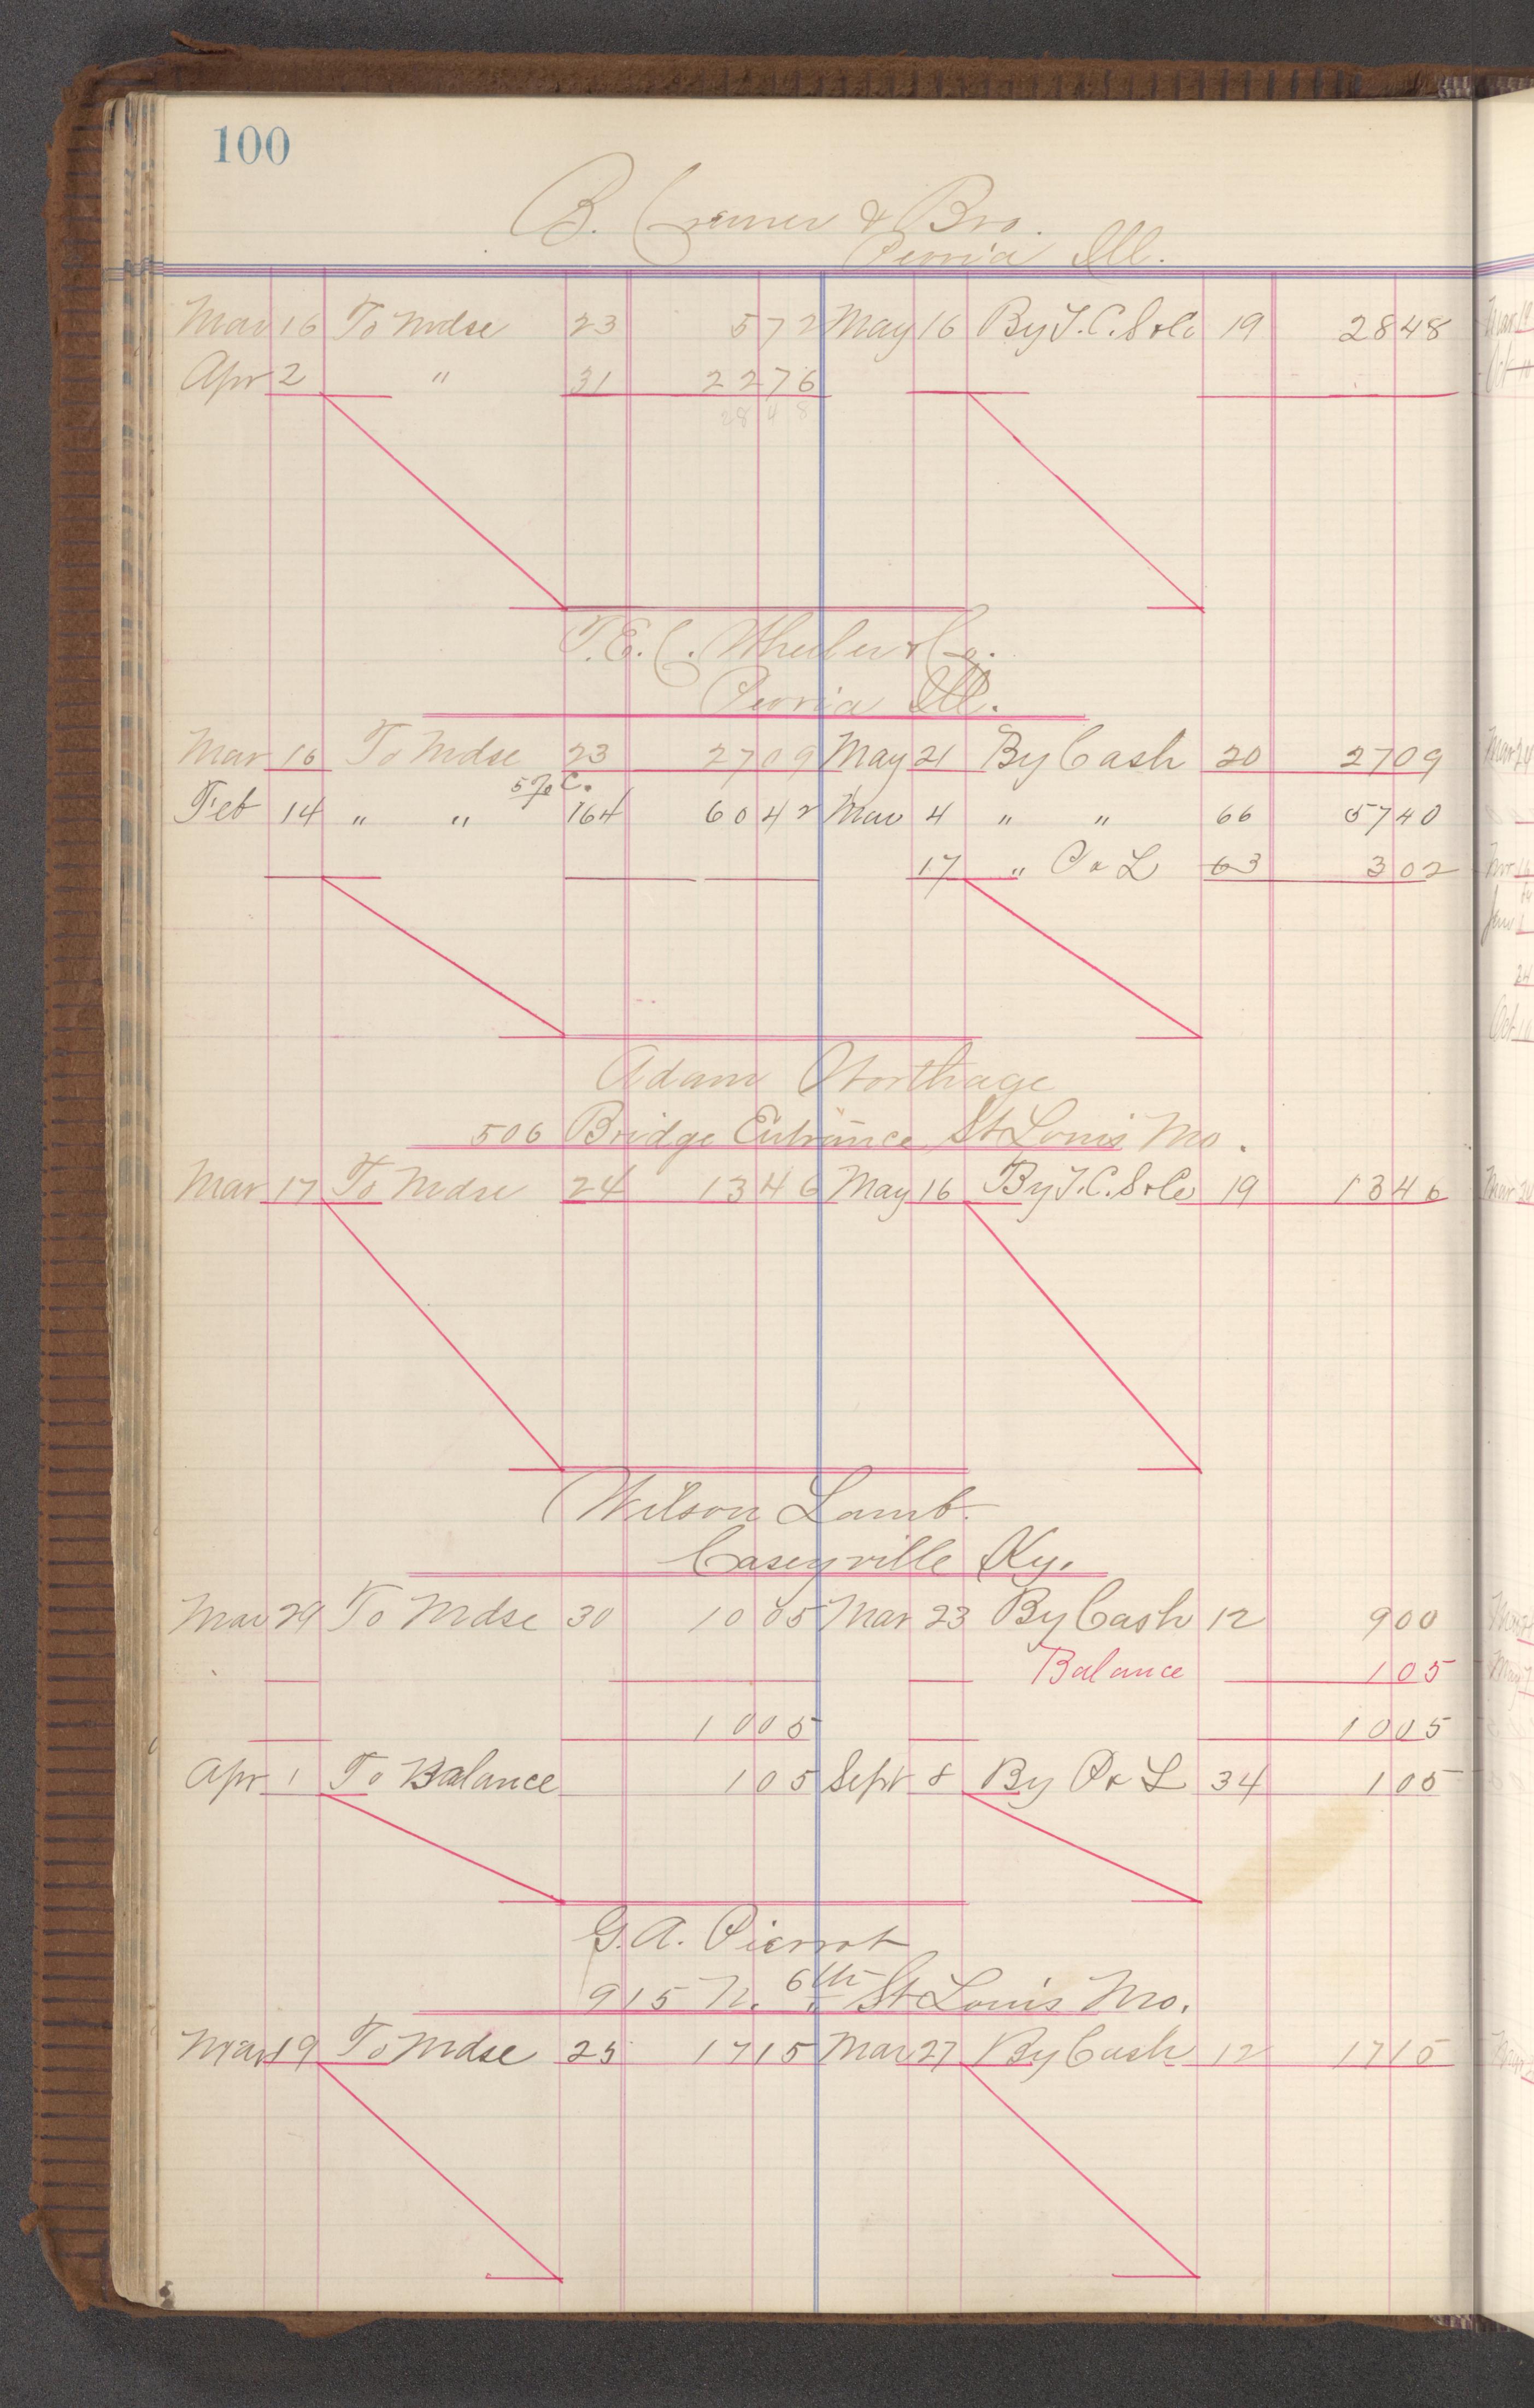 100
B. Cremer & Bro.
Peoria Ill.
Mar 16 To Mdse 23 5 72 May 16 By T. C. S & Co 19 28 48
Apr 2 " 31 22 76
28 48
T. E. C. Wheeler & Co.
Peoria Ill.
Mar 16 To Mdse 23 27 09 May 21 By Cash 20 27 09
5% C.
Feb 14 " " 164 60 42 Mar 4 " " 66 57 40
17 " P & L 63 3 02
Adam
506 Bridge Entrance St Louis Mo.
Mar 17 To Mdse 24 13 46 May 16 By T. C. S & Co 19 13 46
Wilson Lamb.
Caseyville Ky.
Mar 29 To Mdse 30 10 05 Mar 23 By Cash 12 9 00
Balance 1 05
10 05 10 05
Apr 1 To Balance 1 05 Sept 8 By P & L 34 1 05
G. A. Pierrot
915 N. 6th St Louis Mo.
Mar 19 To Mdse 25 17 15 Mar 27 By Cash 12 17 15